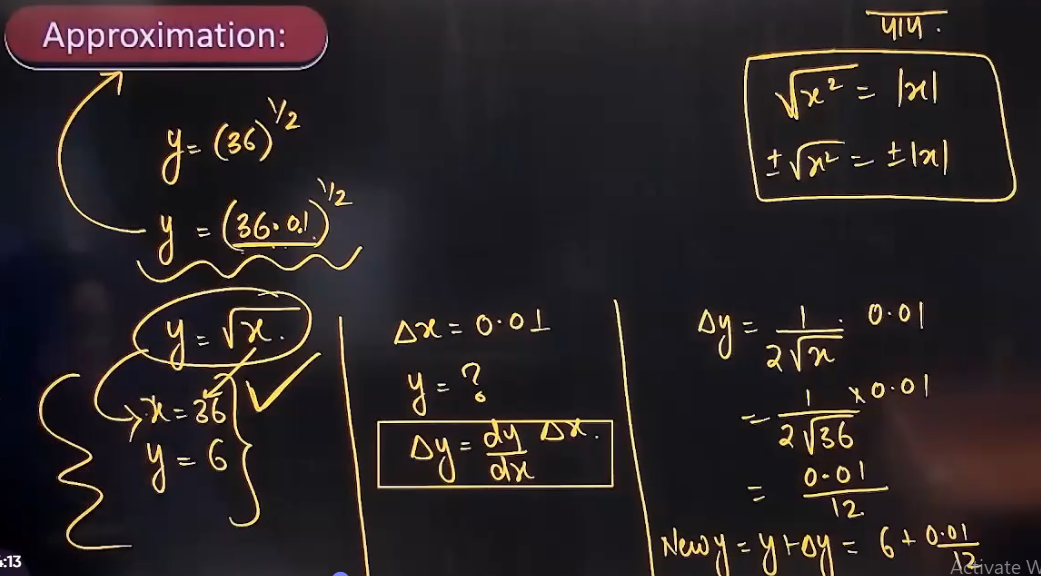 Approximation:
y = (36)^1/2
y = (36.01)^1/2
y = √x.
x = 36
y = 6
Δx = 0.01
y = ?
Δy = dy/dx Δx.
√x² = |x|
±√x² = ±|x|
Δy = 1/2√x . 0.01
= 1/2√36 × 0.01
= 0.01/12
New y = y + Δy = 6 + 0.01/12
:13
Activate W